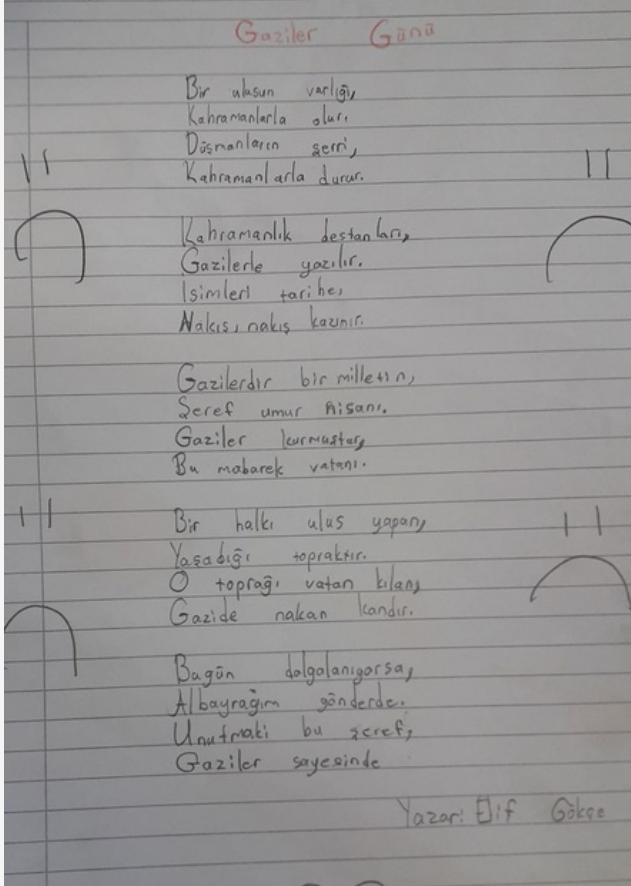 Gaziler Günü
Bir ulusun varlığı,
Kahramanlarla olur.
Düşmanların şerri,
Kahramanlarla durur.
Kahramanlık destanları,
Gazilerle yazılır.
Isimleri tarihe,
Nakış, nakış kazınır.
Gazilerdir bir milletin,
Şeref umur nisanı.
Gaziler kurmuştur,
Bu mabarek vatanı.
Bir halkı ulus yapan,
Yaşadığı topraktır.
O toprağı vatan kılan,
Gazide nakan kandır.
Bugün dalgalanıyorsa,
Albayrağım gönderde.
Unutmaki bu şeref,
Gaziler sayesinde
Yazar: Elif Gökçe